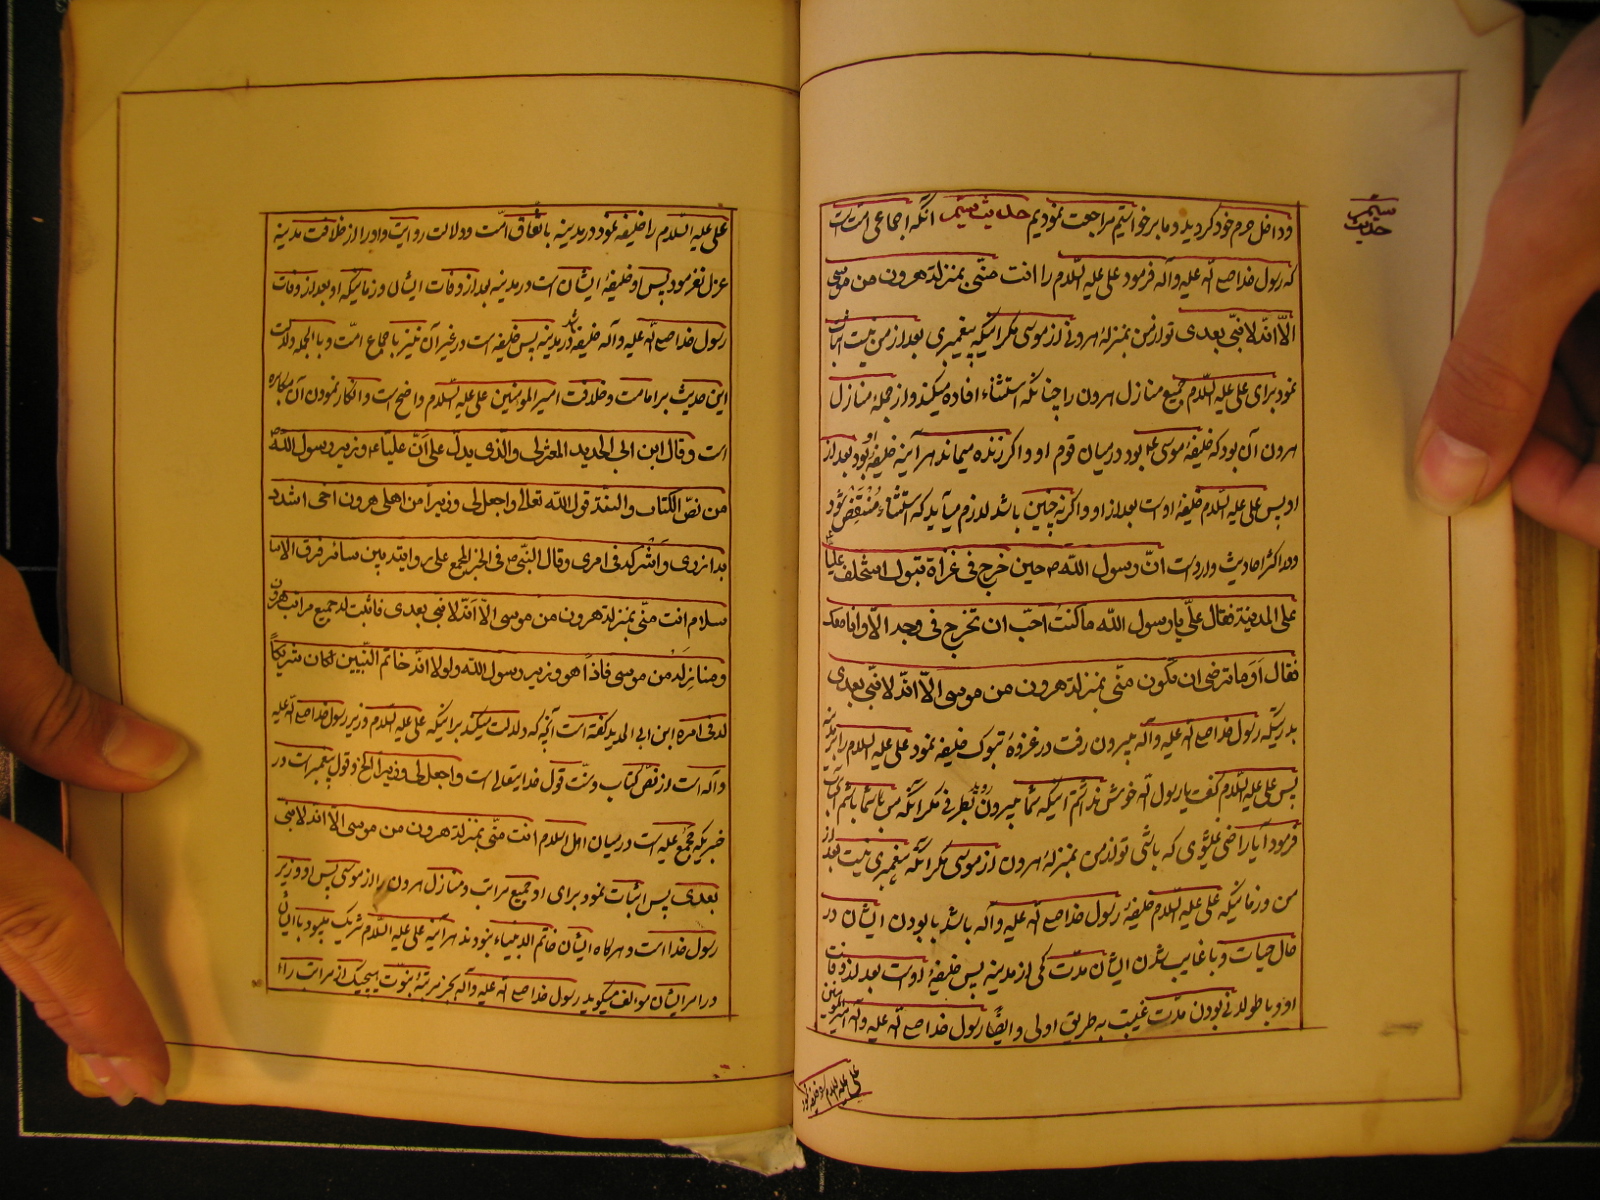 سیم
حدیث
و داخل حرم خود کردید و ما برخواستیم مراجعت نمودیم حدیث سیم آنکه اجماعی امت است
که رسول خدا صلی الله علیه وآله فرمود علی علیه السلام را انت منّی بمنزلة هرون من موسی
الّا انّه لا نبیّ بعدی تو از من بمنزلهٔ هرونی از موسی مکر اینکه پیغمبری بعد از من نیست اثبات
نمود برای علی علیه السلام جمیع منازل هرون را چنانکه استثناء افاده میکند و از جملهٔ منازل
هرون آن بود که خلیفهٔ موسی بود در میان قوم او و اکر زنده میماند هر آینه خلیفهٔ او بود بعد از
او پس علی علیه السلام خلیفهٔ اوست بعد از او و اکر نه چنین باشد لازم میآید که استثناء منتقض شود
و در اکثر احادیث وارد است انّ رسول الله ص حین خرج فی غزاة تبوک استخلف علیا
علی المدینة فقال علیّ یا رسول الله ما کنت احبّ ان تخرج فی وجه الّا وانا معک
فقال اَوَما ترضی ان تکون منّی بمنزلة هرون من موسی الّا انّه لا نبیّ بعدی
بدرستیکه رسول خدا صلی الله علیه وآله بیرون رفت در غزوهٔ تبوک خلیفه نمود علی علیه السلام را بر مدینه
پس علی علیه السلام کفت یا رسول الله خوش نداشتم اینکه شما بیرون روید بطرفی مکر آنکه من با شما باشم
فرمود آیا راضی نمیشوی که باشی تو از من بمنزلهٔ هرون از موسی مکر آنکه پیغمبری نیست بعد از
من و زمانیکه علی علیه السلام خلیفهٔ رسول خدا صلی الله علیه وآله باشد با بودن ایشان در
حال حیات و با غایب شدن ایشان مدّت کمی از مدینه پس خلیفهٔ اوست بعد از وفات
او و با طولانی بودن مدّت غیبت به طریق اولی و ایضًا رسول خدا صلی الله علیه وآله امیر المومنین
علی علیه السلام را خلیفه نمود
علی علیه السلام را خلیفه نمود در مدینه باتفاق امّت و دلالت روایت و او را از خلافت مدینه
عزل نفرمود پس او خلیفهٔ ایشان است در مدینه بعد از وفات ایشان و زمانیکه او بعد از وفات
رسول خدا صلی الله علیه وآله خلیفه شد در مدینه پس خلیفه است در غیر آن نیز باجماع امّت و بالجمله دلالت
این حدیث بر امامت و خلافت امیر المومنین علی علیه السلام واضح است و انکار نمودن آن مکابره
است و قال ابن ابی الحدید المعتزلی والّذی یدلّ علی انّ علیّاء وزیر رسول الله
من نصّ الکتاب والسنّة قول الله تعالی واجعل لی وزیرا من اهلی هرون اخی اشدد
به ازری واشرکه فی امری وقال النبی ص فی الخبر المجمع علی روایته بین سائر فرق الاسا
سلام انت منّی بمنزلة هرون من موسی الّا انّه لا نبی بعدی فاثبت له جمیع مراتب هرون
ومنازله من موسی فاذًا هو وزیر رسول الله ولولا انّه خاتم النبیین لکان شریکًا
له فی امره ابن ابی الحدید کفته است آنچه که دلالت میکند بر اینکه علی علیه السلام وزیر رسول خدا صلی الله علیه
وآله است از نصّ کتاب و سنّت قول خدایتعالی است واجعل لی وزیرا الخ و قول پیغمبر است در
خبریکه مجمع علیه است در میان اهل اسلام انت منّی بمنزلة هرون من موسی الّا انّه لا نبی
بعدی پس اثبات نمود برای او جمیع مراتب و منازل هرون را از موسی پس او وزیر
رسول خدا است و هرکاه ایشان خاتم الانبیاء نبودند هر آینه علی علیه السلام شریک میبود با ایشان
در امر ایشان موالف میکوید رسول خدا صلی الله علیه وآله بجز مرتبهٔ نبوّت هیچیک از مراتب را